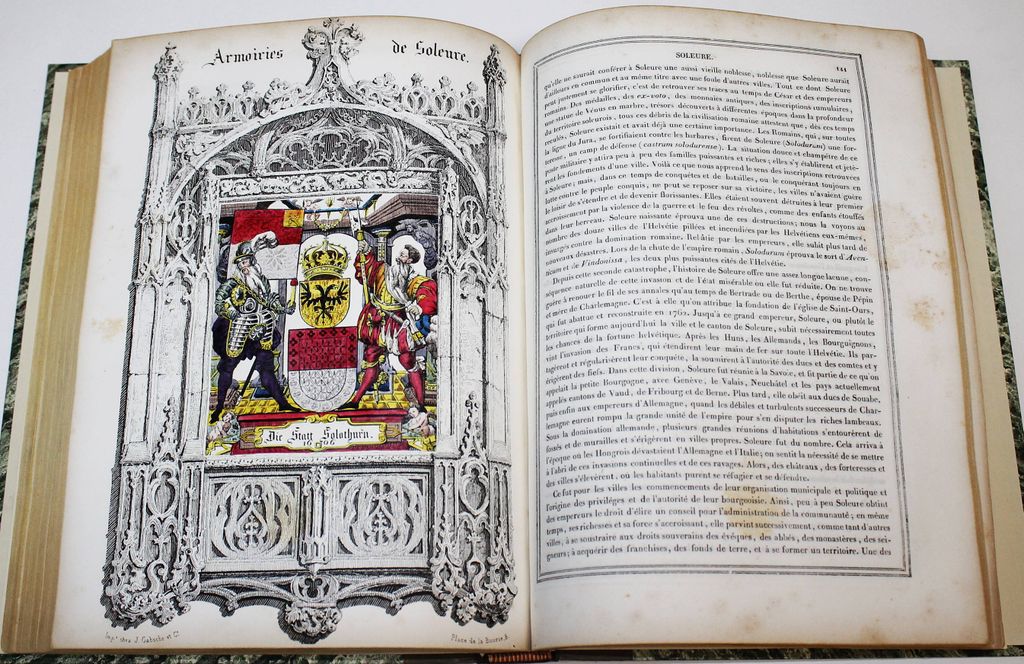 Armoiries de Soleure.
Die Statt Solothurn.
Place de la Bourse, 8.
SOLEURE.
qu'elle ne saurait conférer à Soleure une aussi vieille noblesse, noblesse que Soleure aurait
d'ailleurs en commun et au même titre avec une foule d'autres villes. Tout ce dont Soleure
peut justement se glorifier, c'est de retrouver ses traces au temps de César et des empereurs
romains. Des médailles, des ex-voto, des monnaies antiques, des inscriptions tumulaires,
une statue de Vénus en marbre, trésors découverts à différentes époques dans la profondeur
du territoire soleurois, tous ces débris de la civilisation romaine attestent que, dès ces temps
reculés, Soleure existait et avait déjà une certaine importance. Les Romains, qui, sur toute
la ligne du Jura, se fortifiaient contre les barbares, firent de Soleure (Solodurum) une for-
teresse, un camp de défense (castrum solodurense). La situation douce et champêtre de ce
poste militaire y attira peu à peu des familles puissantes et riches; elles s'y établirent et jetè-
rent les fondements d'une ville. Voilà ce que nous apprend le sens des inscriptions retrouvées
à Soleure; mais, dans ce temps de conquêtes et de batailles, où le conquérant toujours en
lutte contre le peuple conquis, ne peut se reposer sur sa victoire, les villes n'avaient guère
le loisir de s'étendre et de devenir florissantes. Elles étaient souvent détruites à leur premier
accroissement par la violence de la guerre et le feu des révoltes, comme des enfants étouffés
dans leur berceau. Soleure naissante éprouva une de ces destructions; nous la voyons au
nombre des douze villes de l'Helvétie pillées et incendiées par les Helvétiens eux-mêmes,
insurgés contre la domination romaine. Rebâtie par les empereurs, elle subit plus tard de
nouveaux désastres. Lors de la chute de l'empire romain, Solodurum éprouva le sort d'Aven-
ticum et de Vindonissa, les deux plus puissantes cités de l'Helvétie.
Depuis cette seconde catastrophe, l'histoire de Soleure offre une assez longue lacune, con-
séquence naturelle de cette invasion et de l'état misérable où elle fut réduite. On ne trouve
guère à renouer le fil de ses annales qu'au temps de Bertrade ou de Berthe, épouse de Pépin
et mère de Charlemagne. C'est à elle qu'on attribue la fondation de l'église de Saint-Ours,
qui fut abattue et reconstruite en 1762. Jusqu'à ce grand empereur, Soleure, ou plutôt le
territoire qui forme aujourd'hui la ville et le canton de Soleure, subit nécessairement toutes
les chances de la fortune helvétique. Après les Huns, les Allemands, les Bourguignons,
vint l'invasion des Francs, qui étendirent leur main de fer sur toute l'Helvétie. Ils par-
tagèrent et régularisèrent leur conquête, la soumirent à l'autorité des ducs et des comtes et y
érigèrent des fiefs. Dans cette division, Soleure fut réunie à la Savoie, et fit partie de ce qu'on
appelait la petite Bourgogne, avec Genève, le Valais, Neuchâtel et les pays actuellement
appelés cantons de Vaud, de Fribourg et de Berne. Plus tard, elle obéit aux ducs de Souabe,
puis enfin aux empereurs d'Allemagne, quand les débiles et turbulents successeurs de Char-
lemagne eurent rompu la grande unité de l'empire pour s'en disputer les riches lambeaux.
Sous la domination allemande, plusieurs grandes réunions d'habitations s'entourèrent de
fossés et de murailles et s'érigèrent en villes propres. Soleure fut du nombre. Cela arriva à
l'époque où les Hongrois dévastaient l'Allemagne et l'Italie; on sentit la nécessité de se mettre
à l'abri de ces invasions continuelles et de ces ravages. Alors, des châteaux, des forteresses et
des villes s'élevèrent, où les habitants purent se réfugier et se défendre.
Ce fut pour les villes les commencements de leur organisation municipale et politique et
l'origine des privilèges et de l'autorité de leur bourgeoisie. Ainsi, peu à peu Soleure obtint
des empereurs le droit d'élire un conseil pour l'administration de la communauté; en même
temps, ses richesses et sa force s'accroissant, elle parvint successivement, comme tant d'autres
villes, à se soustraire aux droits souverains des évêques, des abbés, des monastères, des sei-
gneurs; à acquérir des franchises, des fonds de terre, et à se former un territoire. Une des